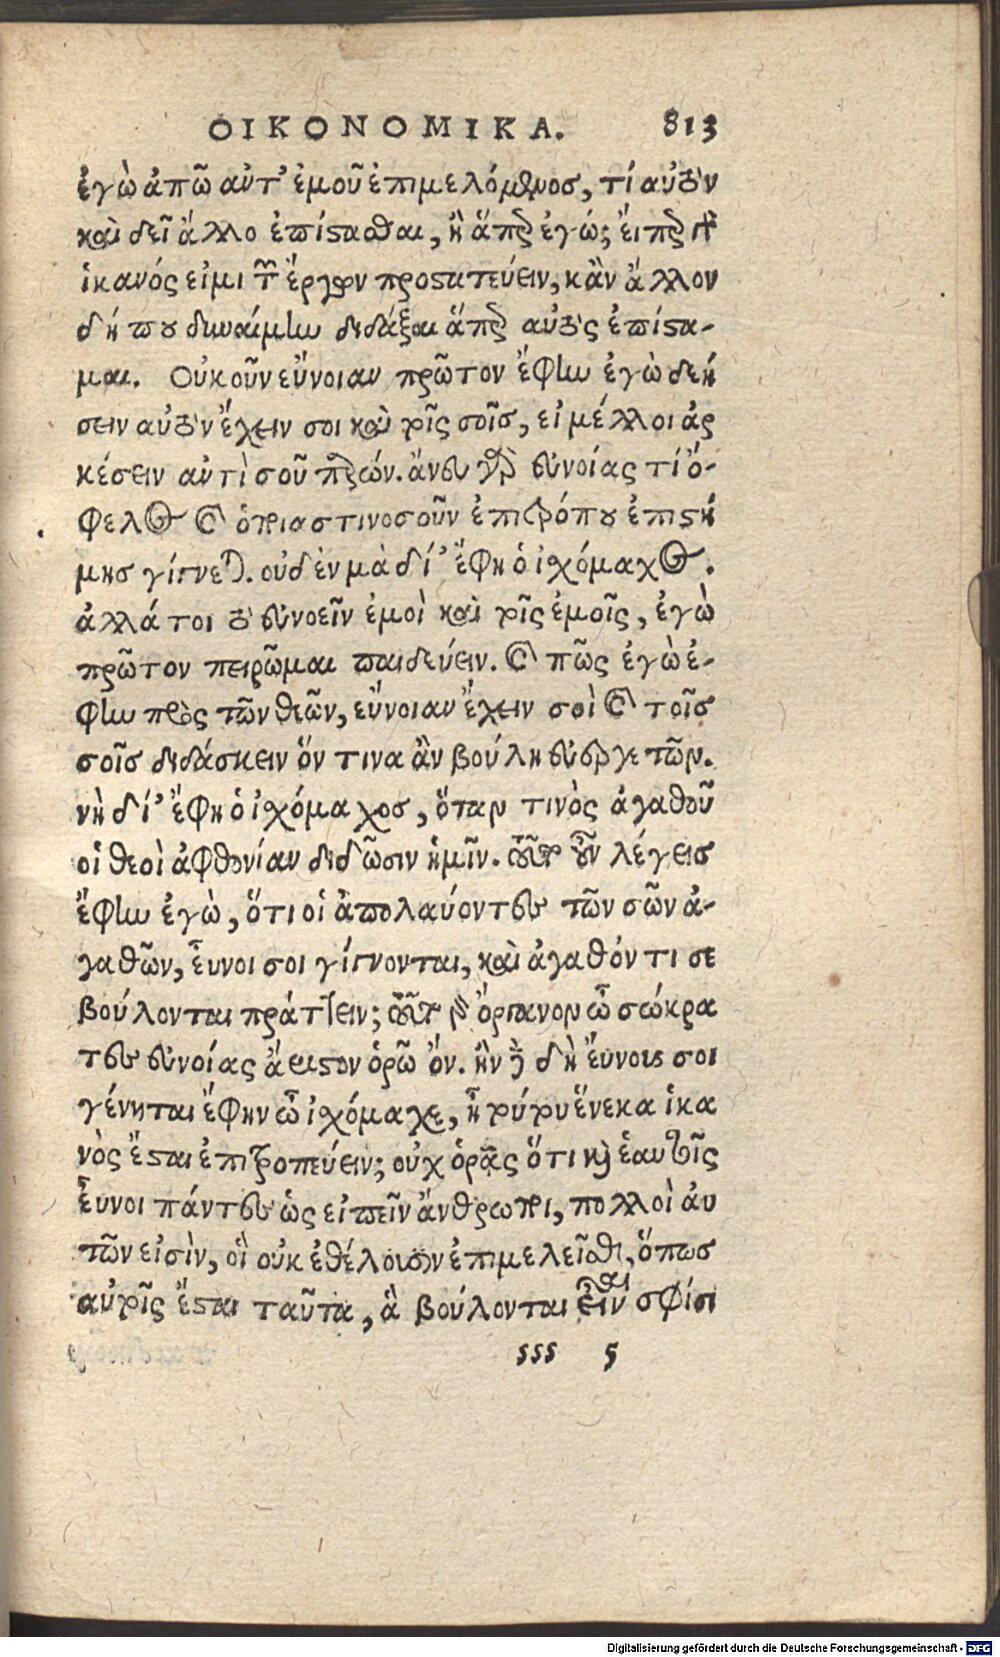 ΟΙΚΟΝΟΜΙΚΑ. 813
ἐγὼ ἀπῶ ἀντ' ἐμοῦ ἐπιμελόμενος, τί αὐτὸν
καὶ δεῖ ἄλλο ἐπίστασθαι, ἢ ἅπερ ἐγώ; εἴπερ γὰρ
ἱκανός εἰμι τῶν ἔργων προστατεύειν, κἂν ἄλλον
δή που δυναίμην διδάξαι ἅπερ αὐτὸς ἐπίστα-
μαι. Οὐκοῦν εὔνοιαν πρῶτον ἔφην ἐγὼ δεή
σειν αὐτὸν ἔχειν σοι καὶ τοῖς σοῖς, εἰ μέλλοι ἀρ
κέσειν ἀντὶ σοῦ παρών. ἄνευ γὰρ εὐνοίας τί ὄ-
φελος καὶ ὁποιαστινοσοῦν ἐπιτρόπου ἐπιστή
μης γίγνεται. οὐδὲν μὰ δί' ἔφη ὁ ἰχόμαχος.
ἀλλά τοι τὸ εὐνοεῖν ἐμοὶ καὶ τοῖς ἐμοῖς, ἐγὼ
πρῶτον πειρῶμαι παιδεύειν. καὶ πῶς ἐγὼ ἔ-
φην πρὸς τῶν θεῶν, εὔνοιαν ἔχειν σοὶ καὶ τοῖς
σοῖς διδάσκειν ὅν τινα ἂν βούλῃ εὐεργετῶν.
νὴ δί' ἔφη ὁ ἰχόμαχος, ὅταν τινὸς ἀγαθοῦ
οἱ θεοὶ ἀφθονίαν διδῶσιν ἡμῖν. τοῦτο οὖν λέγεις
ἔφην ἐγὼ, ὅτι οἱ ἀπολαύοντες τῶν σῶν ἀ-
γαθῶν, εὖνοι σοι γίγνονται, καὶ ἀγαθόν τι σε
βούλονται πράττειν; τοῦτο γὰρ ὄργανον ὦ σώκρα
τες εὐνοίας ἄριστον ὁρῶ ὄν. ἢν δὲ δὴ εὔνους σοι
γένηται ἔφην ὦ ἰχόμαχε, ἦ τούτου ἕνεκα ἱκα
νὸς ἔσται ἐπιτροπεύειν; οὐχ ὁρᾷς ὅτι καὶ ἑαυτοῖς
εὖνοι πάντες ὡς εἰπεῖν ἄνθρωποι, πολλοὶ αὐ
τῶν εἰσὶν, οἳ οὐκ ἐθέλουσιν ἐπιμελεῖσθαι, ὅπως
αὐτοῖς ἔσται ταῦτα, ἃ βούλονται εἶναι σφίσι
sss 5
Digitalisierung gefördert durch die Deutsche Forschungsgemeinschaft - DFG